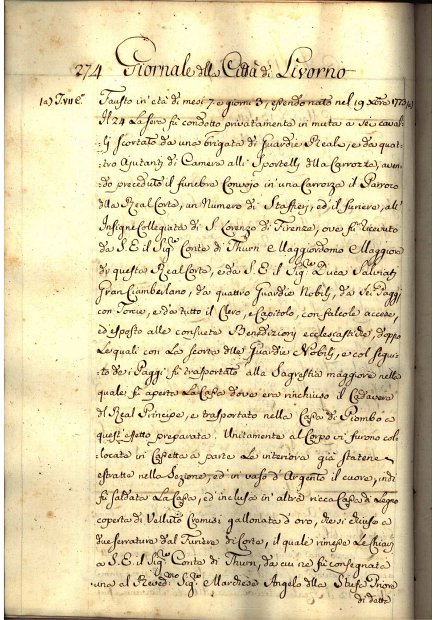 274 Giornale della Città di Livorno
(a) T. VII C.
Fausto in età di mesi 7. e giorni 3, essendo nato nel 19 xbre 1773 (a)
Il 24 La sera fù condotto privatamente in muta a sei caval-
-li scortato da una brigata di Guardie Reale, e da quat-
-tro Ajutanti di Camera alli Sportelli della Carrozza, aven-
-do preceduto il funebre Convojo in una Carrozza il Parroco
della Real Corte, un Numero di Staffieri, ed il furiere, all'
Insigne Collegiata di S. Lorenzo di Firenze, ove fù ricevuto
da S. E. il Sigr. Conte di Thurn Maggiordomo Maggiore
di questa Real Corte, e da S. E. il Sigr. Duca Salviati
Gran Ciamberlano, da quattro Guardie Nobili, da Sei Paggi
con Torcie, e da tutto il Clero, e Capitolo, con falcole accese,
ed esposto alle consuete Benedizioni ecclesiastiche, doppo
Le quali con La scorta delle Guardie Nobili, e col segui-
to de i Paggi fù trasportato alla Sagrestia maggiore nella
quale fù aperta La Cassa dove era rinchiuso il Cadavere
del Real Principe, e trasportato nella Cassa di Piombo a
quest'effetto preparata. Unitamente al Corpo vi furono col-
-locate in Cassetta a parte Le interiora già statene
estratte nella Sezione, ed in vaso d'Argento il cuore, indi
fù saldata La Cassa, ed inclusa in altra ricca Cassa di Legno
coperta di Velluto Cremisi gallonata d'oro, che si chiuse a
due serrature dal furiere di Corte, il quale rimesse Le Chiavi
a S. E. il Sigr. Conte di Thurn, da cui ne fù consegnata
una al Revdmo Sigr. Marchese Angelo della Stufa Priore
di detta